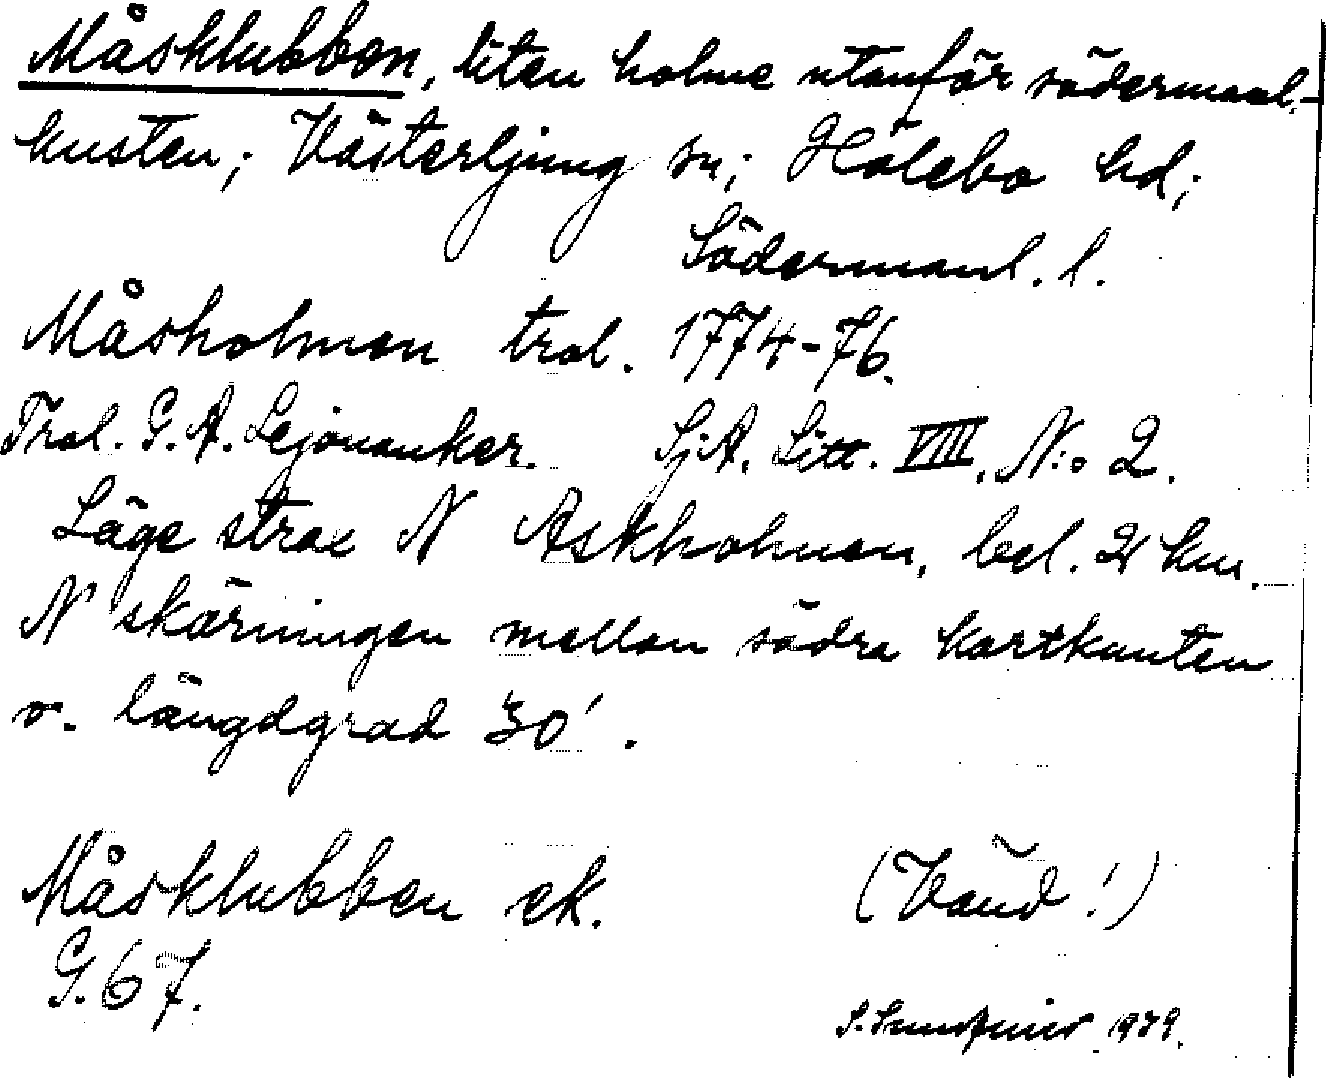 Måsklubben, liten holme utanför södermanl.-
kusten; Västerljung sn; Hölebo hd;
Södermanl. l.
Måsholmen trol. 1774-76.
Trol. G. A. Lejonanker. SjA. Litt. VIII. N:o 2.
Läge strax N Askholmen, bel. 2 km.
N skärningen mellan södra kartkanten
o. längdgrad 30'.
Måsklubben ek.
G. 67.
(Vänd!)
S. 1939.